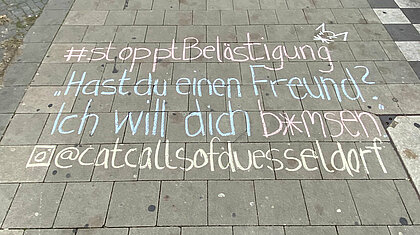 #stopptBelästigung
„Hast du einen Freund?
Ich will dich b*msen"
@catcallsofduesseldorf